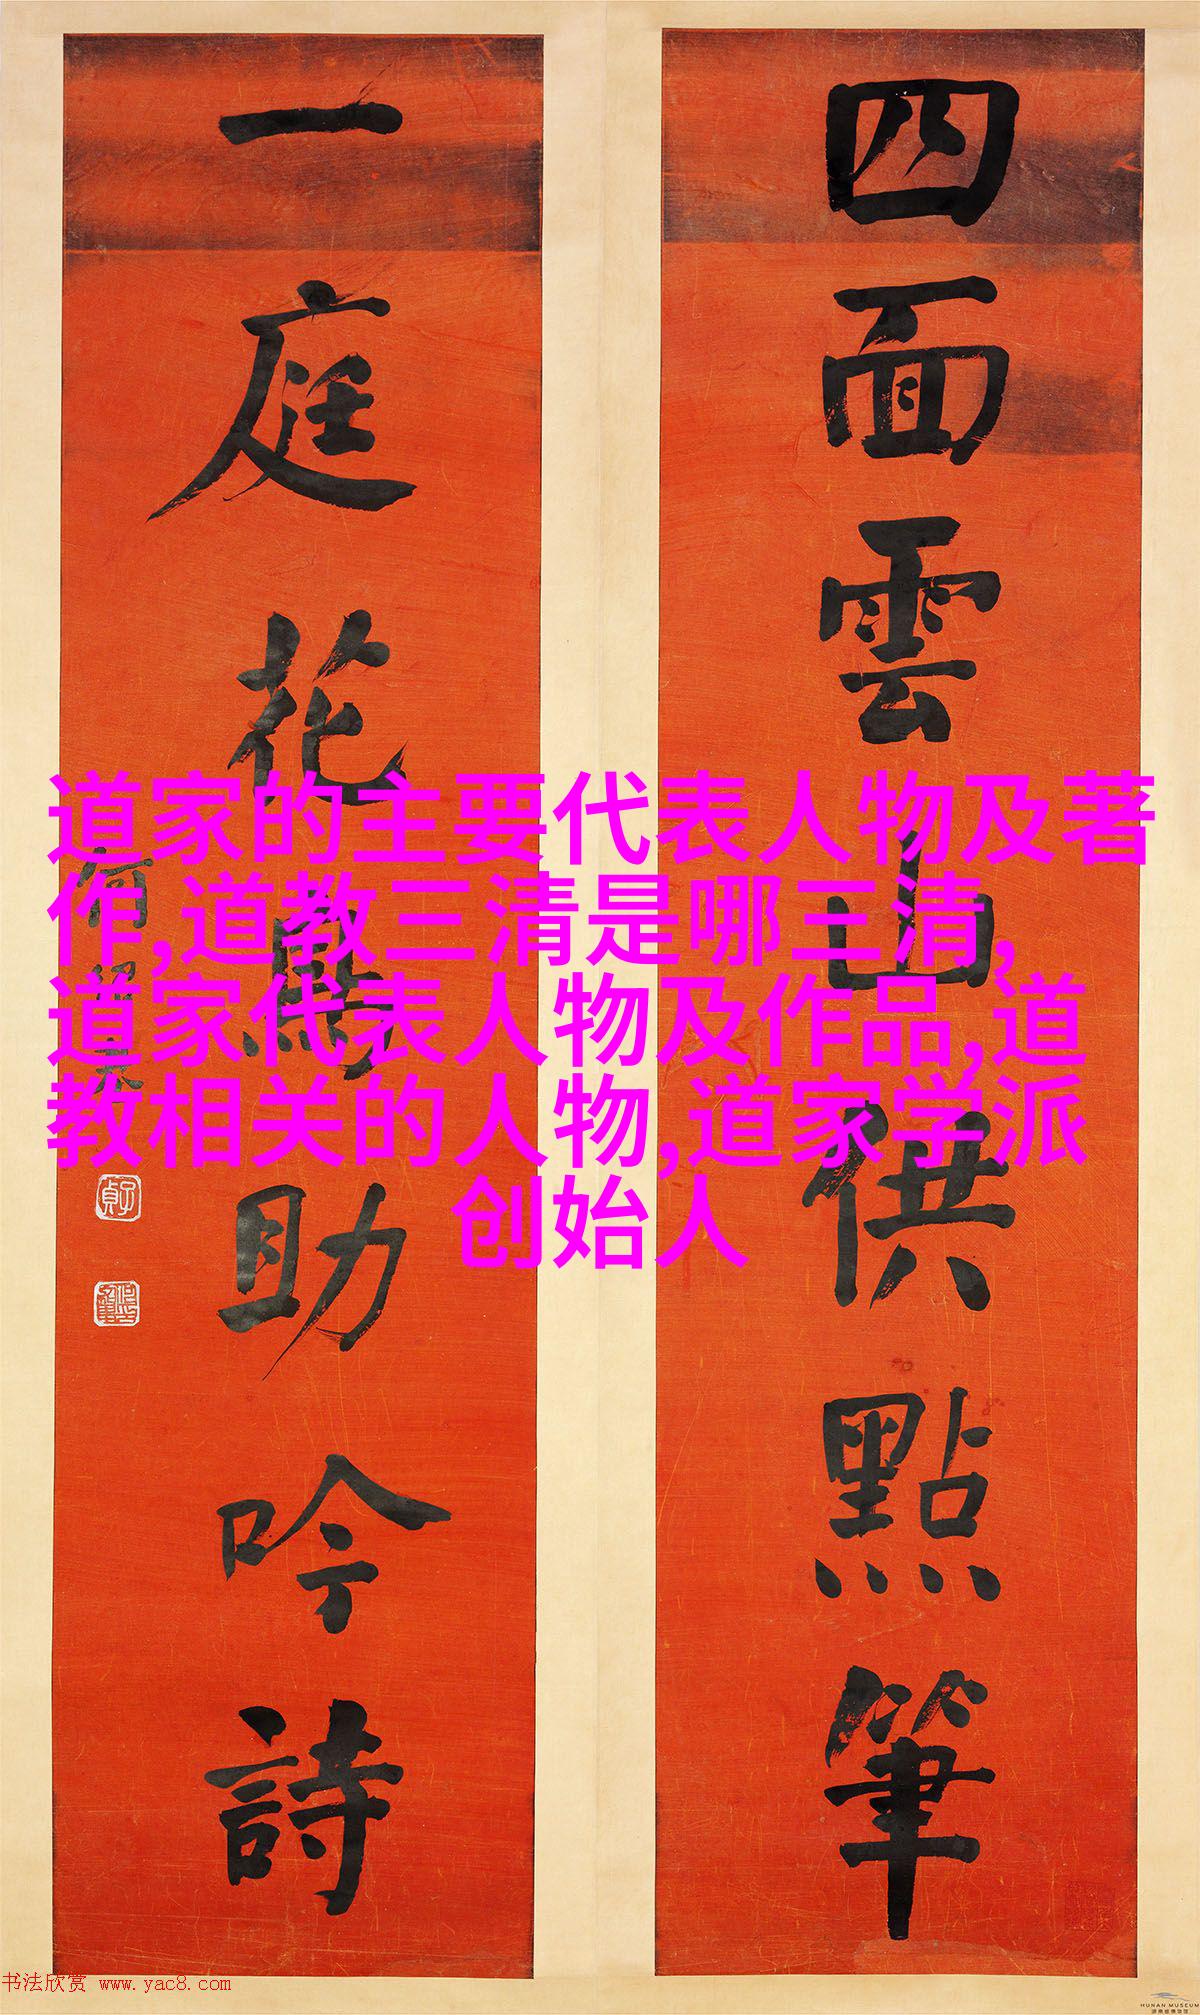 四面雲山供點筆
一庭花鳥助吟詩
何紹基
道家的主要代表人物及著
作,道教三清是哪三清,
道家代表人物及作品,道
教相关的人物,道家学派
创始人
书法欣赏 www.yac8.com
HUNAN MUSEUM
湖南博物院